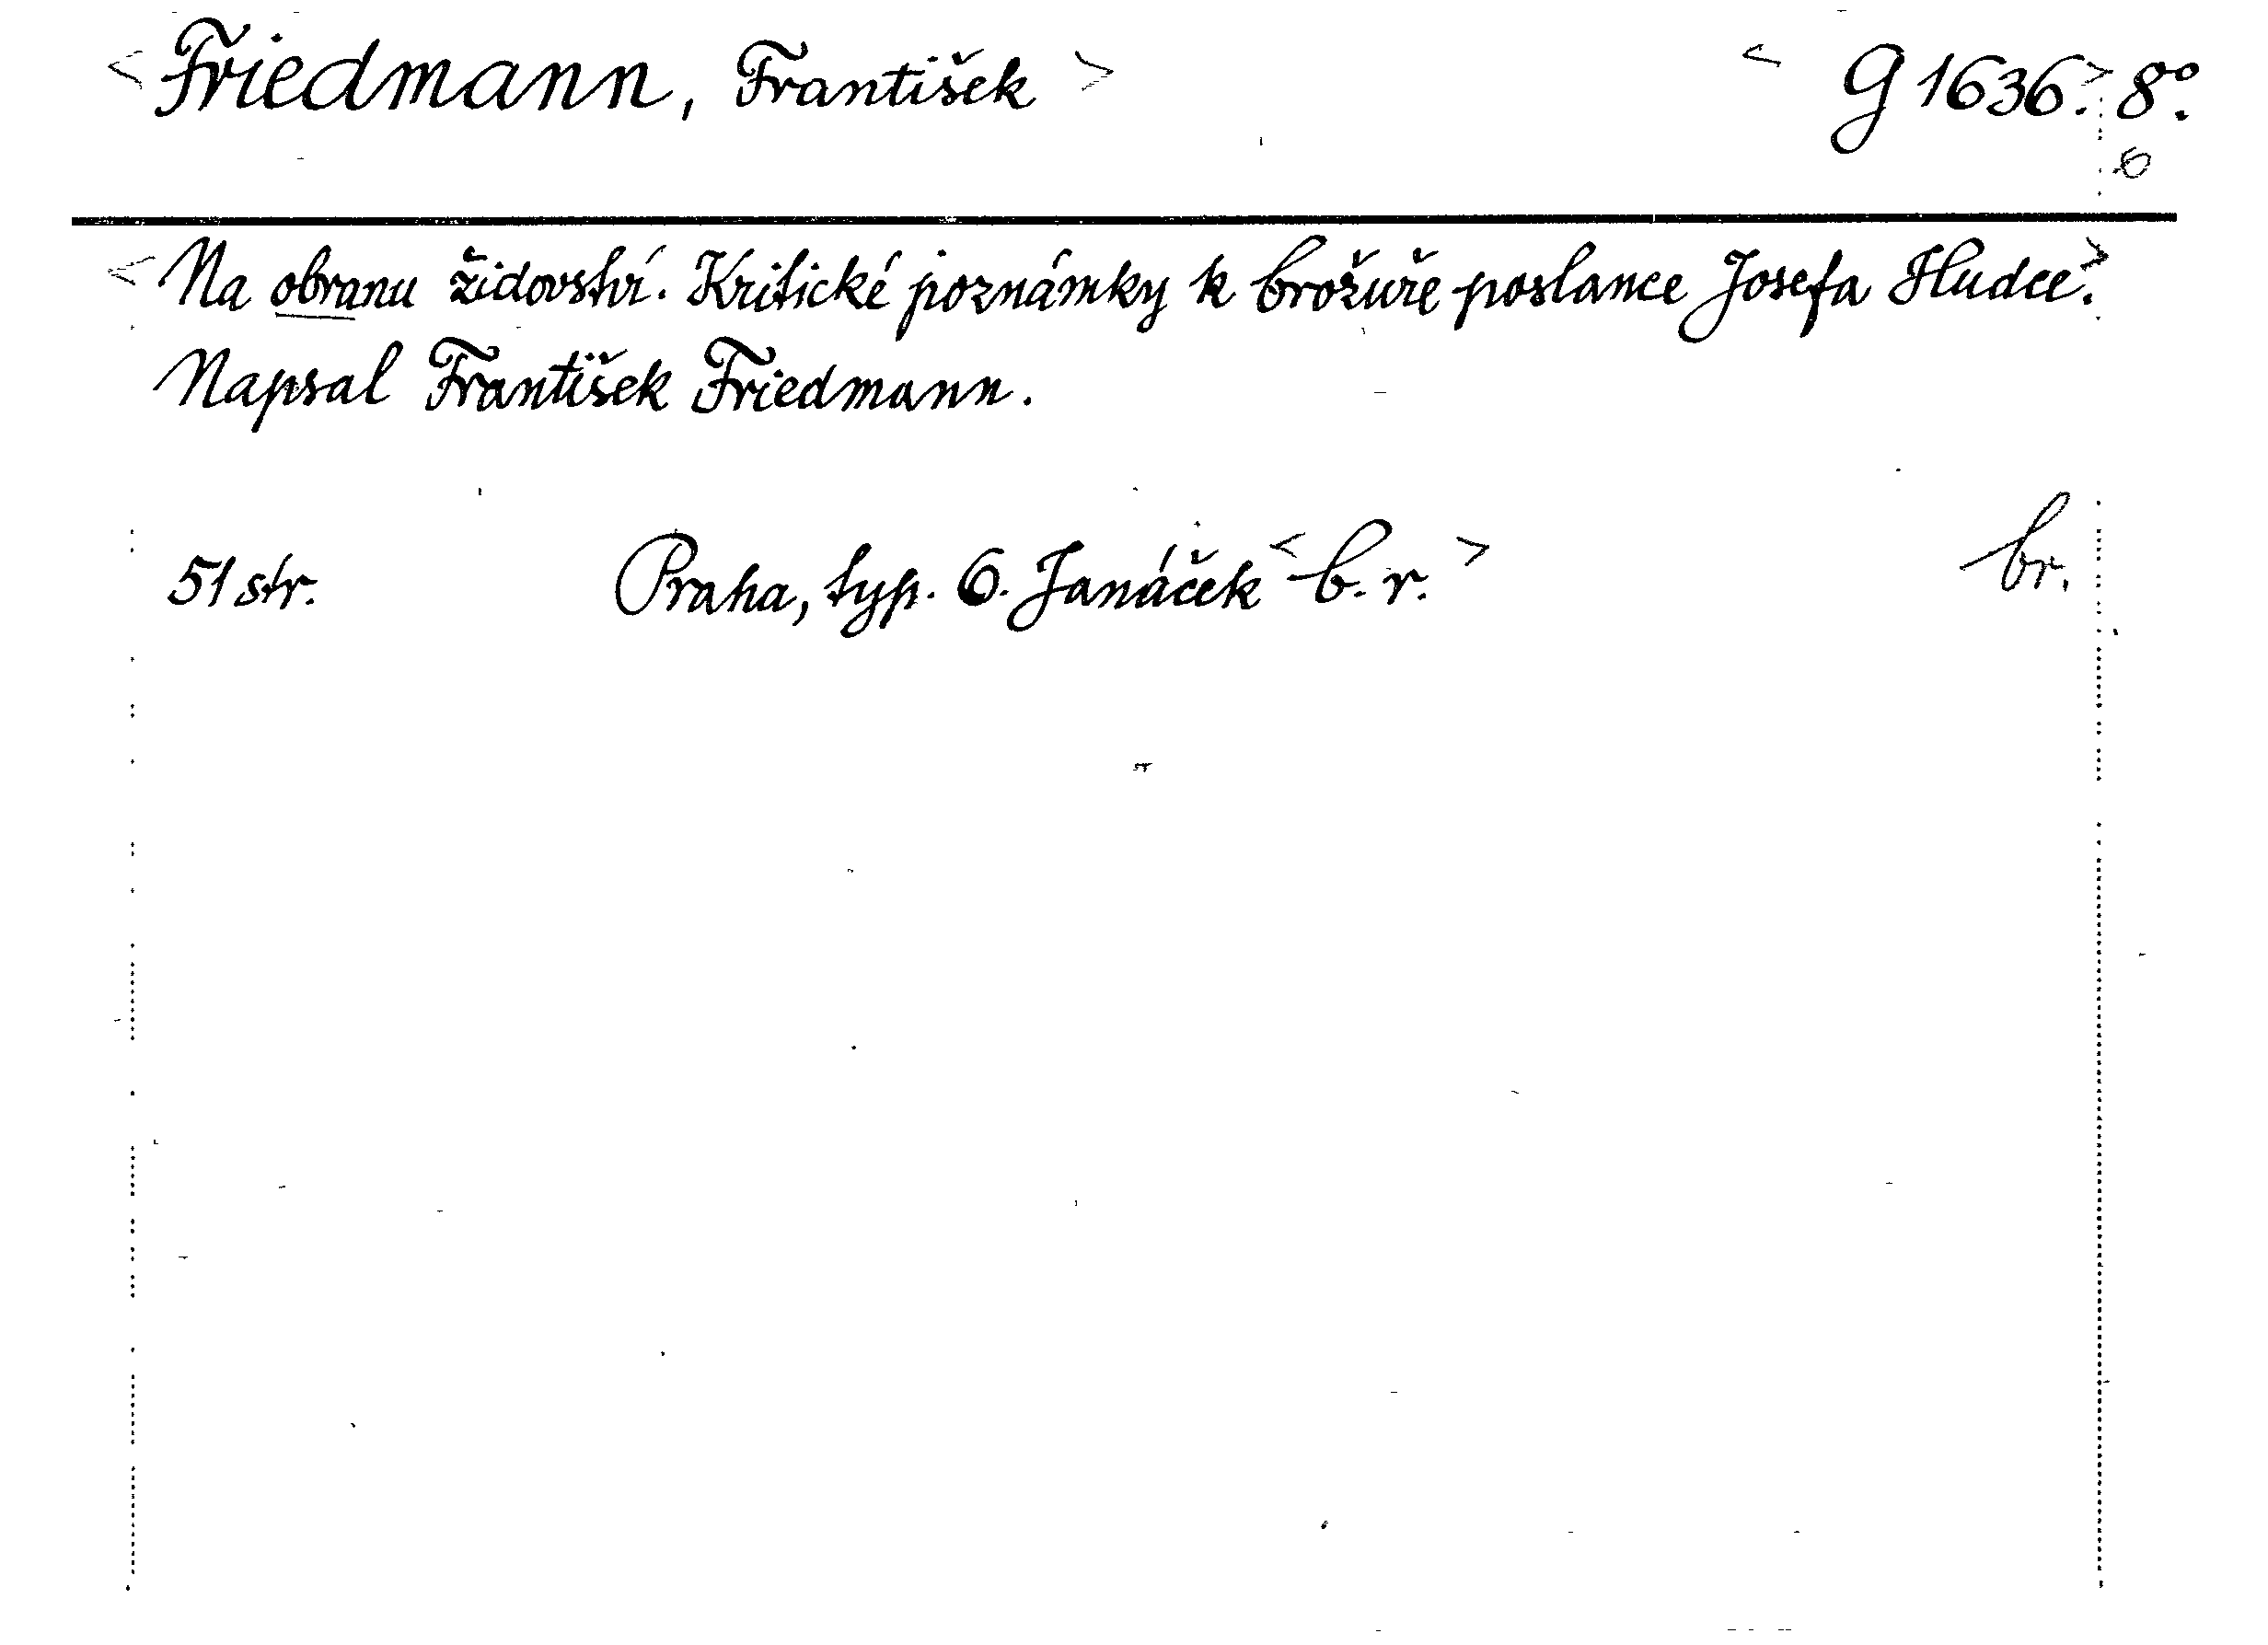 <Friedmann, František> <G 1636.> 8°.
6
<Na obranu židovství. Kritické poznámky k brožuře poslance Josefa Hudce.>
Napsal František Friedmann.
51 str. Praha, typ. O. Janáček <b. r.> br.